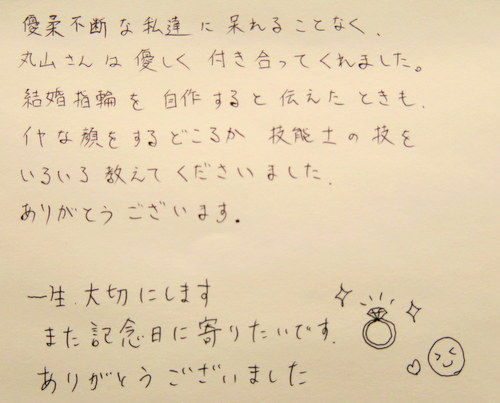 優柔不断な私達に呆れることなく、
丸山さんは優しく付き合ってくれました。
結婚指輪を自作すると伝えたときも、
イヤな顔をするどころか技能士の技を
いろいろ教えてくださいました。
ありがとうございます。
一生、大切にします
また記念日に寄りたいです。
ありがとうございました